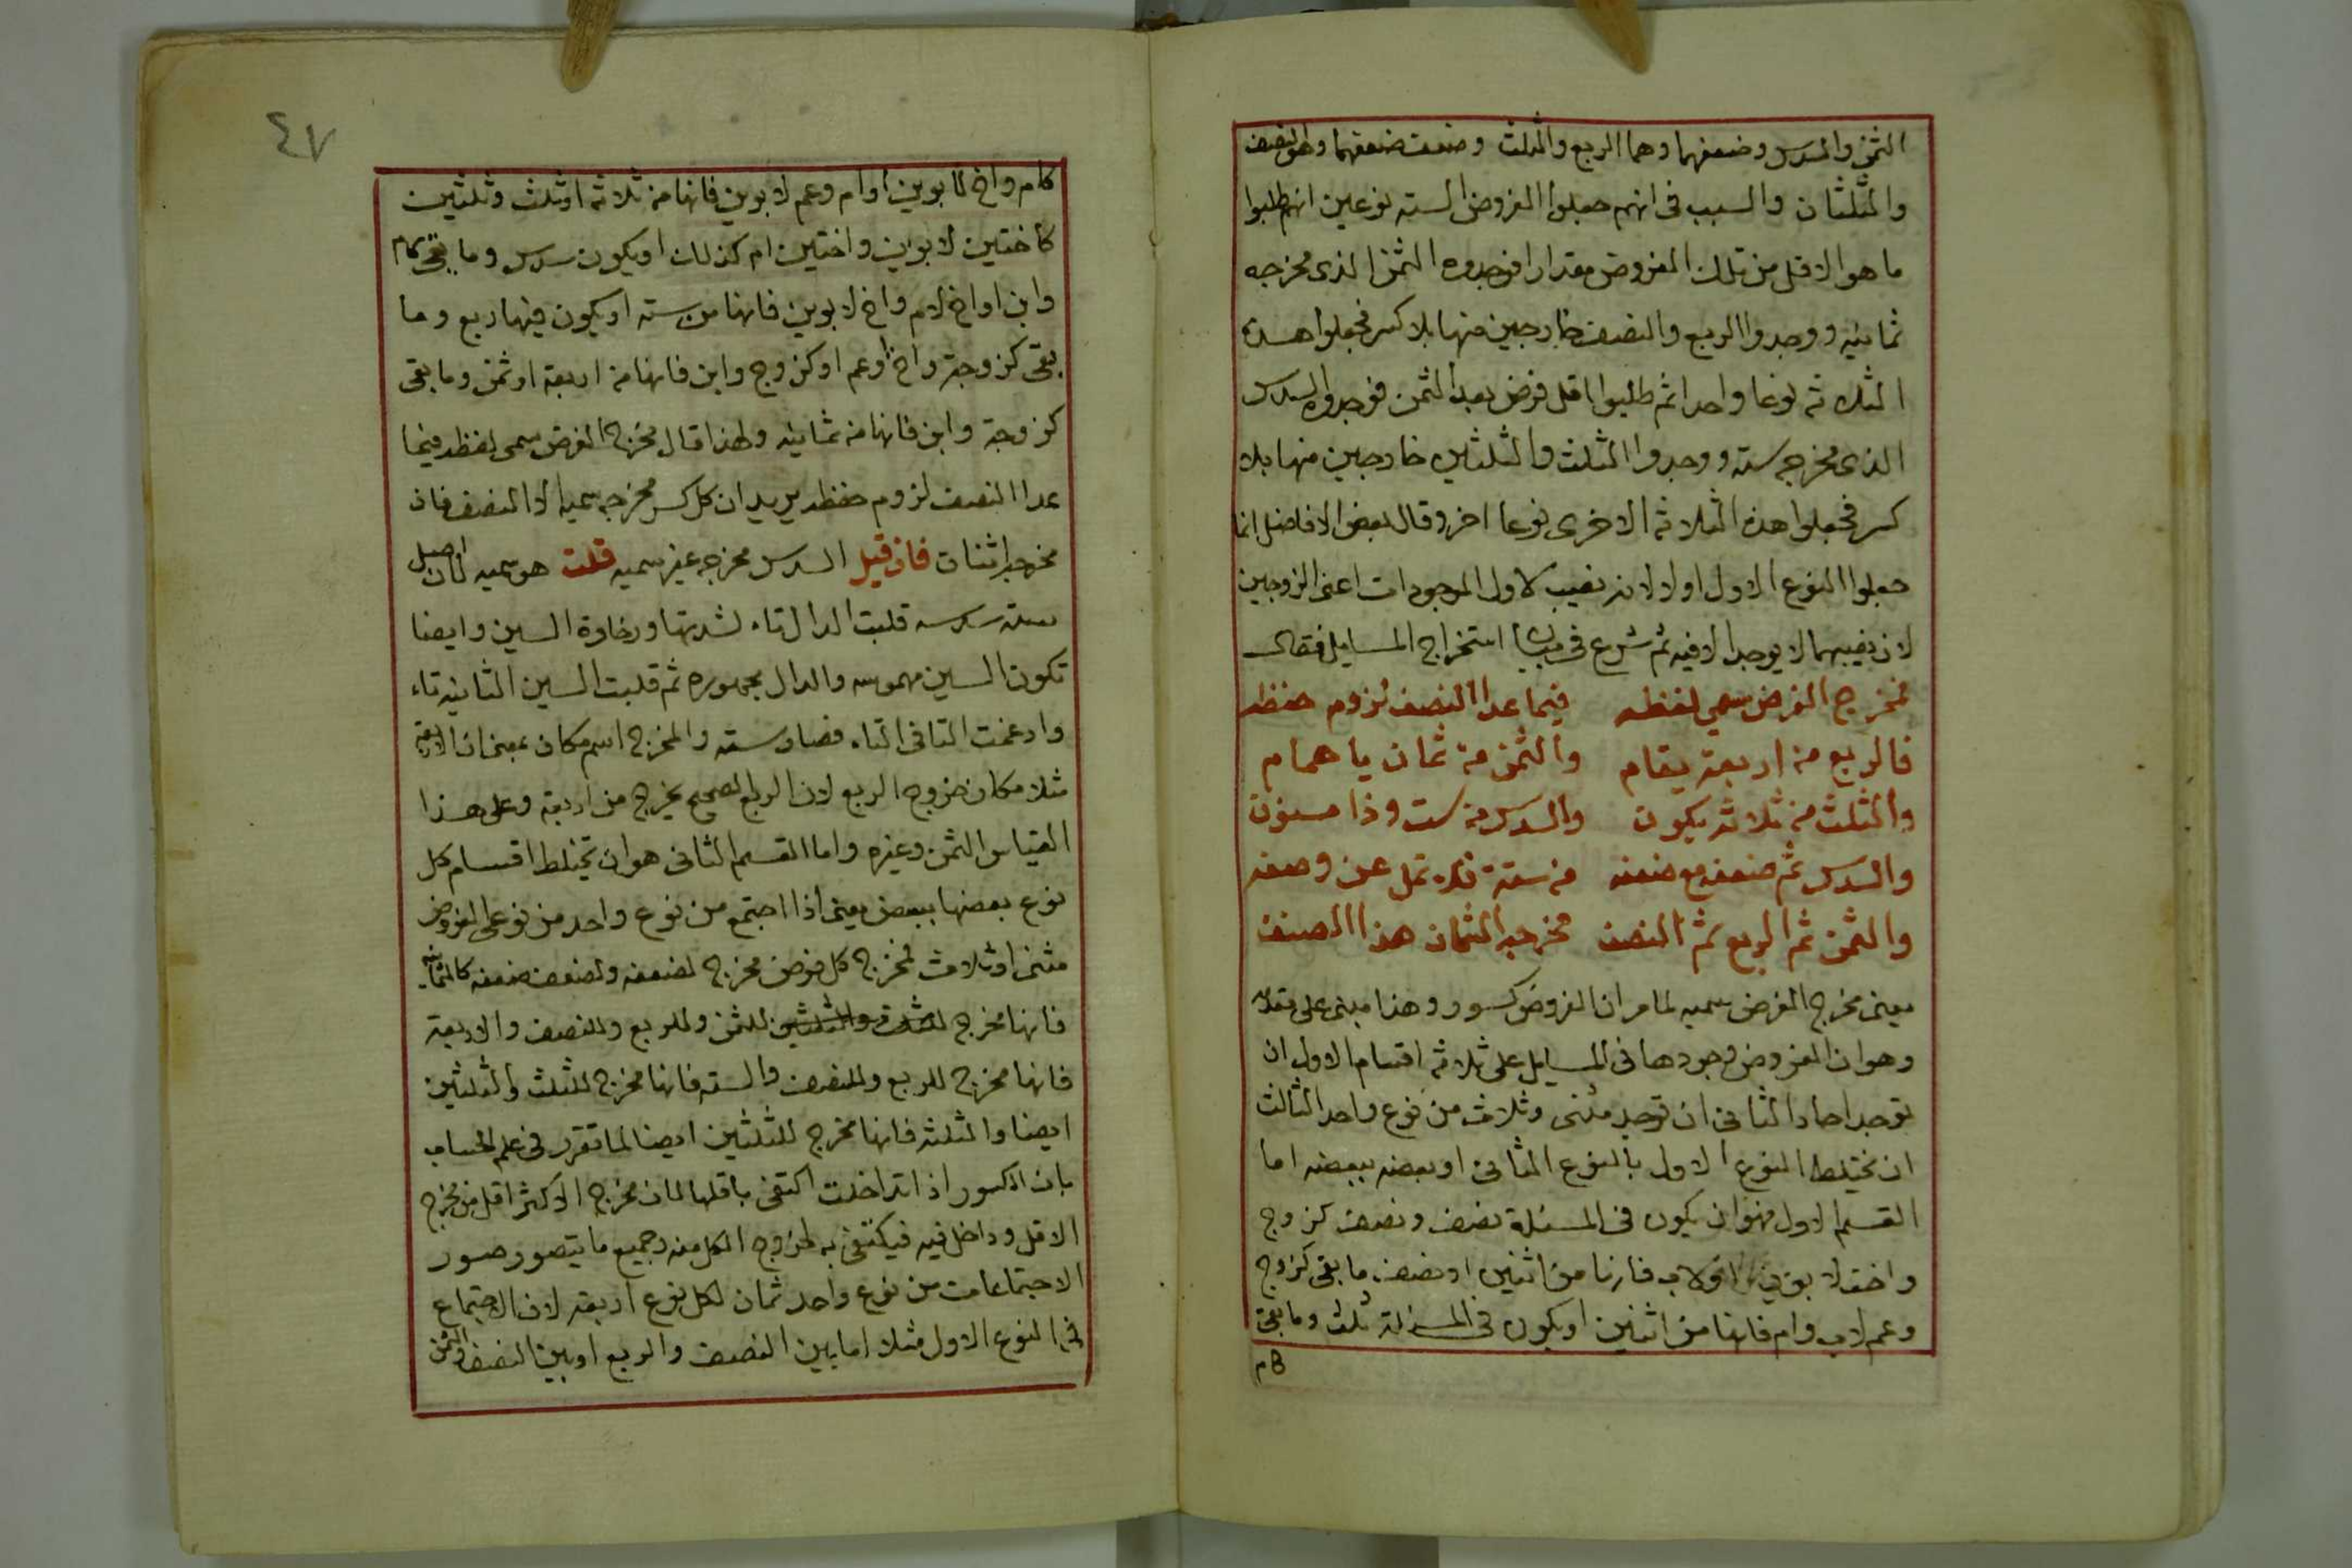 الثمن والسدس وضعفهما وهما الربع والثلث وضعف ضعفهما وهو النصف
والثلثان والسبب فى انهم جعلوا الفروض السته نوعين انهم طلبوا
ما هو الاقل من تلك الفروض مقدارا فوجدوه الثمن الذى مخرجه
ثمانيه ووجدوا الربع والنصف خارجين منها بلا كسر فجعلوا هذه
الثلاثه نوعا واحدا ثم طلبوا اقل فرض بعد الثمن فوجدوه السدس
الذى مخرجه سته ووجدوا الثلث والثلثين خارجين منها بلا
كسر فجعلوا هذه الثلاثه الاخرى نوعا اخر وقال بعض الافاضل انما
جعلوا النوع الاول اولا لانه نصيب لاول الموجودات اعنى الزوجين
لان نصيبهما لا يوجد الا فيه ثم شرع فى بيان استخراج المسايل فقال
مخرج الفرض سمي لفظه فيما عدا النصف لزوم حفظه
فالربع من اربعة يقام والثمن من ثمان يا همام
والثلث من ثلاثه يكون والسدس من ست وذا مسنون
والسدس ثم ضعفه مع ضعفه من ستة فلا تمل عن وصفه
والثمن ثم الربع ثم النصف مخرجه الثمان هذا الصنف
يعنى مخرج الفرض سميه لما مر ان الفروض كسور وهذا مبنى على
وهو ان الفروض وجودها فى المسايل على ثلاثه اقسام الاول ان
توجد احاد الثانى ان توجد مثنى وثلاث من نوع واحد الثالث
ان يختلط النوع الاول بالنوع الثانى او بعضه ببعضه اما
القسم الاول فهو ان يكون فى المسئلة نصف ونصف كزوج
واخت لابوين او لاب فانها من اثنين او نصف وما بقى كزوج
وعم لاب وام فانها من اثنين او يكون فى المسئلة ثلث وما بقى
كام
٤٧
كام واخ لابوين او ام وعم لابوين فانها من ثلاثه او ثلث وثلثين
كاختين لابوين واختين ام كذلك او يكون سدس وما بقى كام
وابن او اخ لام واخ لابوين فانها من سته او يكون فيها ربع وما
بقى كزوجة واخ او عم او كزوج وابن فانها من اربعة او ثمن وما بقى
كزوجة وابن فانها من ثمانيه ولهذا قال مخرج الفرض سمى لفظه فيما
عدا النصف لزوم حفظه يريد ان كل كسر مخرجه سميه الا النصف فان
مخرجه اثنان فان قيل السدس مخرجه غير سميه قلت هو سميه لان اصل
سته سدسه قلبت الدال تاء لشدتها ورخاوة السين وايضا
تكون السين مهموسه والدال مجهوره ثم قلبت السين الثانيه تاء
وادغمت التا فى التاء فصار سته والمخرج اسم مكان بمعنى ان الاربعة
مثلا مكان خروج الربع لان الربع الصحيح يخرج من اربعة وعلى هذا
القياس الثمن وغيره واما القسم الثانى هو ان تختلط اقسام كل
نوع بعضها ببعض يعنى اذا اجتمع من نوع واحد من نوعى الفروض
مثنى او ثلاث فمخرج كل فرض مخرج لضعفه ولضعف ضعفه كالثمانيه
فانها مخرج للثلث والثلثين للثمن وللربع وللنصف والاربعة
فانها مخرج للربع وللنصف والسته فانها مخرج للثلث والثلثين
ايضا والثلثه فانها مخرج للثلثين ايضا لما تقرر فى علم الحساب
بان الكسور اذا تداخلت اكتفى باقلها لان مخرج الاكثر اقل من مخرج
الاقل وداخل فيه فيكتفى به لخروج الكل منه وجميع ما يتصور صور
الاجتماعات من نوع واحد ثمان لكل نوع اربعة لان الاجتماع
فى النوع الاول مثلا اما بين النصف والربع او بين النصف والثمن